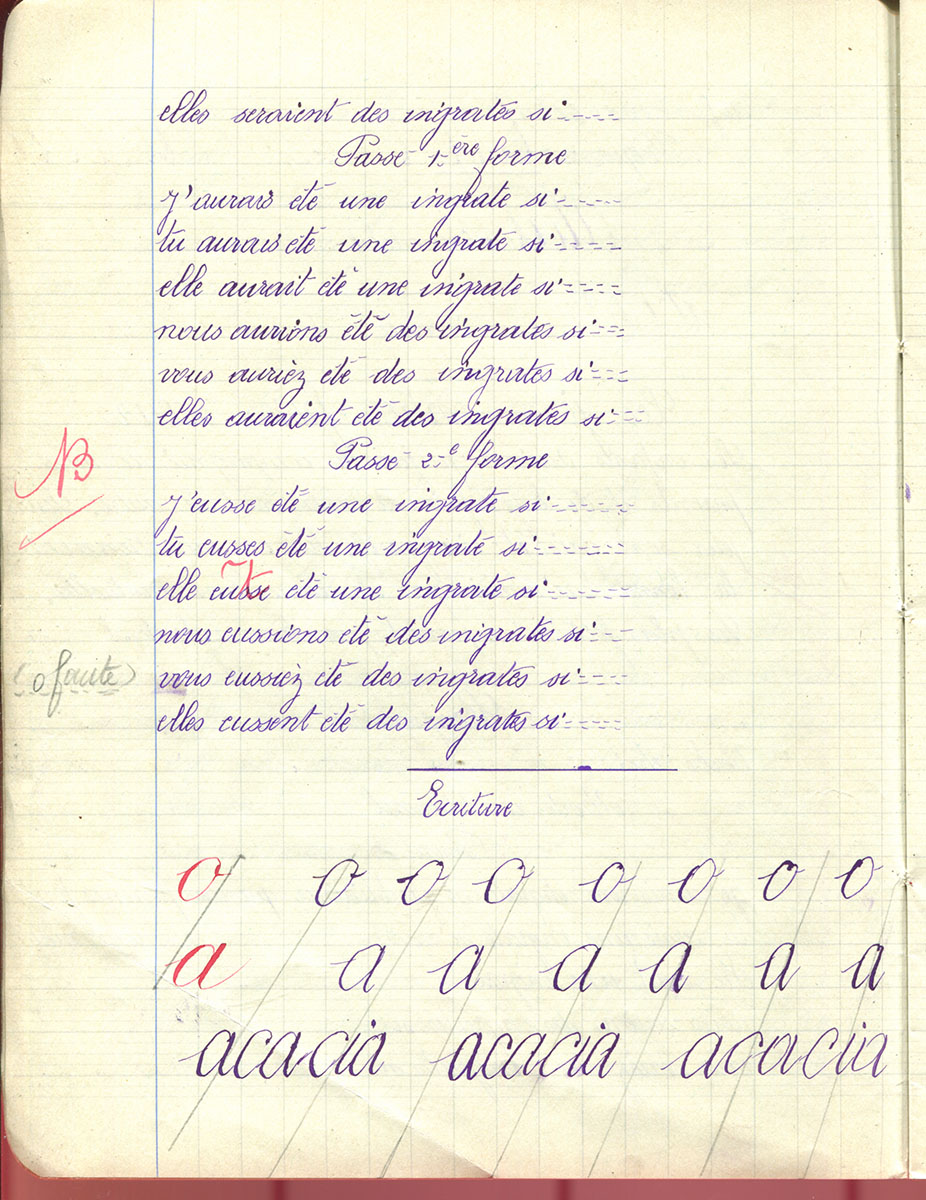 elles seraient des ingrates si-----
Passé 1ère forme
J'aurais été une ingrate si-----
tu aurais été une ingrate si-----
elle aurait été une ingrate si----
nous aurions été des ingrates si---
vous auriez été des ingrates si---
elles auraient été des ingrates si---
Passé 2e forme
NB
J'eusse été une ingrate si------
tu eusses été une ingrate si------
elle eusse été une ingrate si------
ût
nous eussions été des ingrates si----
(0 faute)
vous eussiez été des ingrates si----
elles eussent été des ingrates si----
Ecriture
o o o o o o o o
a a a a a a a
acacia acacia acacia